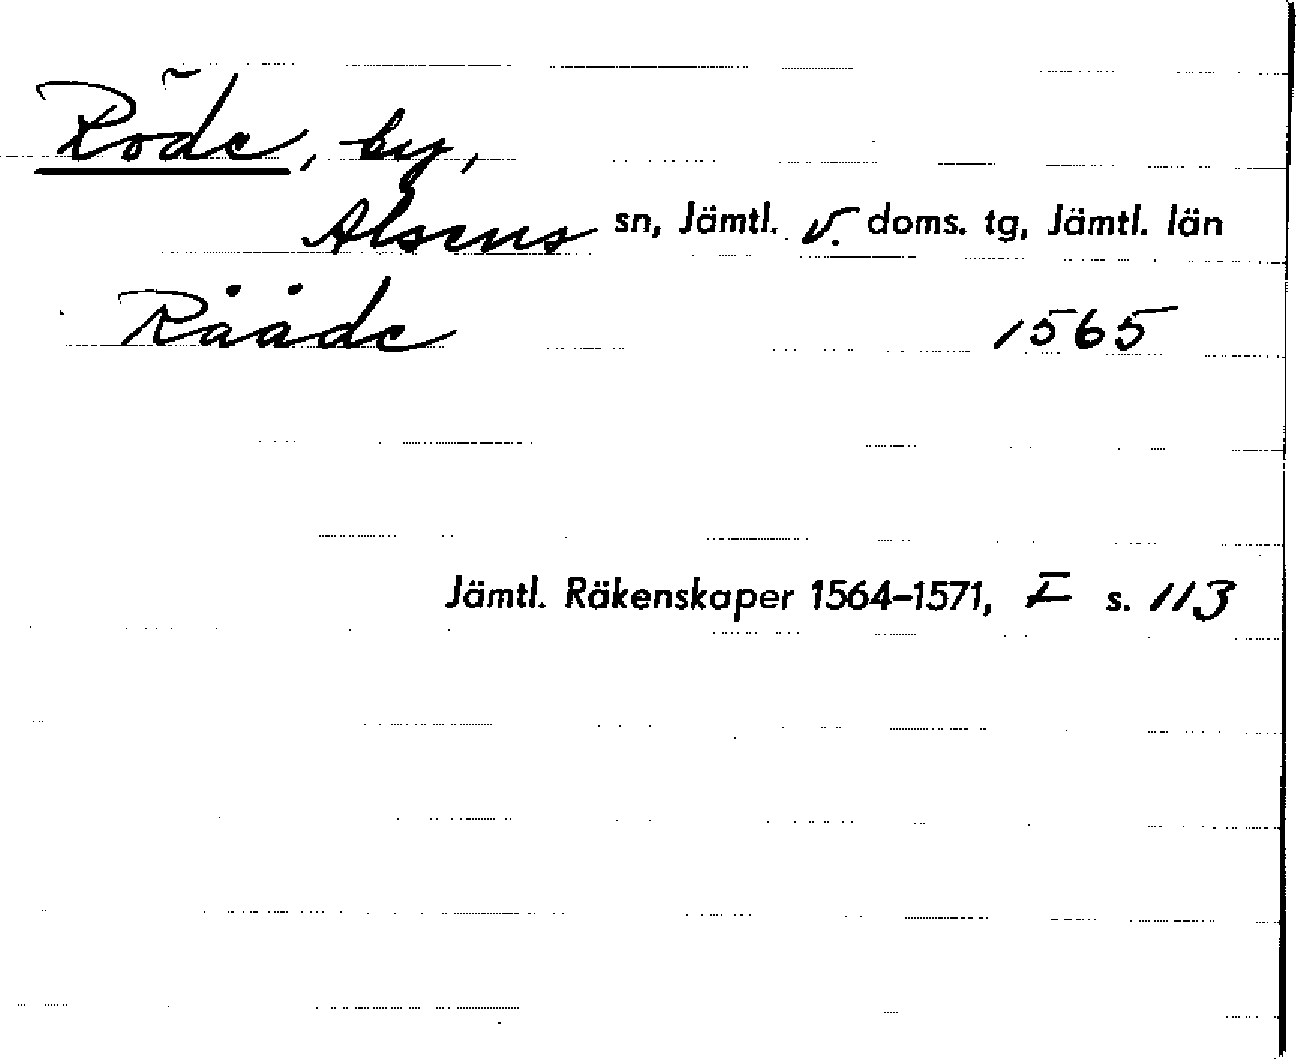 Röde, by,
Alsens sn, Jämtl. v. doms. tg, Jämtl. län
Rååde 1565
Jämtl. Räkenskaper 1564–1571, I s. 113